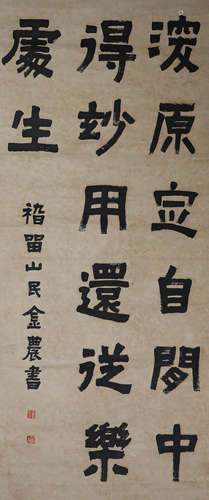 深原定自閒中
得妙用還從樂
處生
稽留山民金農書